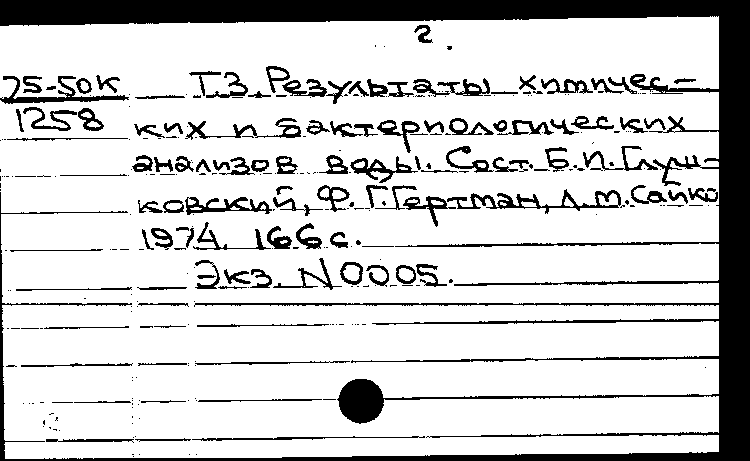 2.
75-50К Т.3. Результаты химичес-
1258 ких и бактериологических
анализов воды. Сост. Б.И. Глуш-
ковский, Ф.Г. Гертман, Л.М. Сайко
1974. 166 с.
Экз. N 0005.